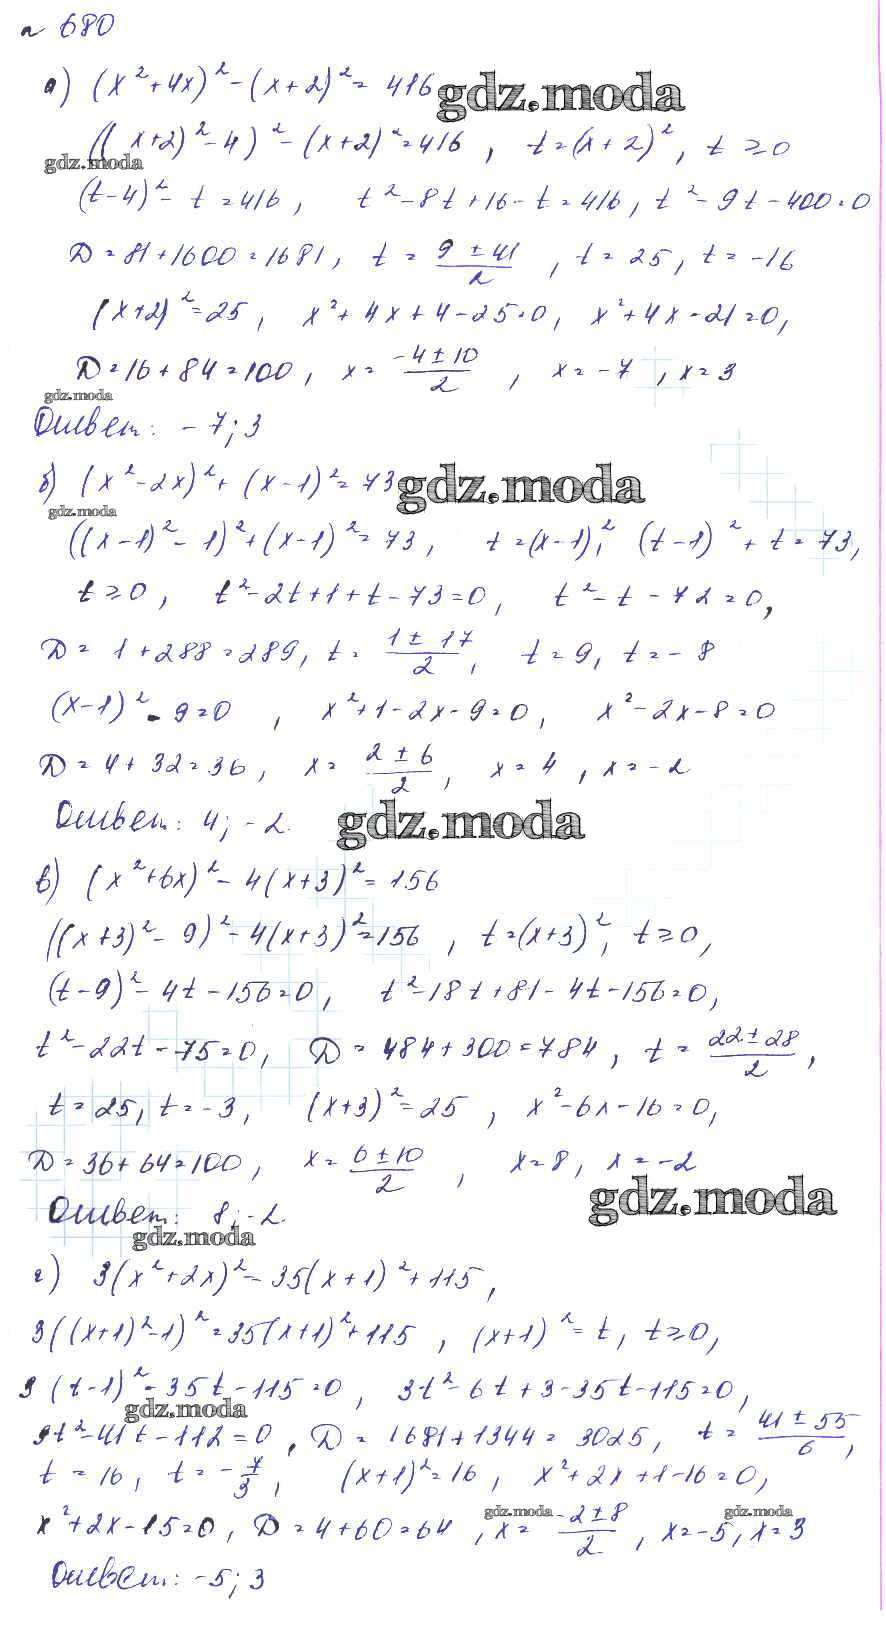 п 680
а) (x²+4x)²-(x+2)²=416 gdz.moda
((x+2)²-4)²-(x+2)²=416, t=(x+2)², t≥0
gdz.moda
(t-4)²-t=416, t²-8t+16-t=416, t²-9t-400=0
D=81+1600=1681, t=(9±41)/2, t=25, t=-16
(x+2)²=25, x²+4x+4-25=0, x²+4x-21=0,
D=16+84=100, x=(-4±10)/2, x=-7, x=3
gdz.moda
Ответ: -7; 3
б) (x²-2x)²+(x-1)²=73 gdz.moda
gdz.moda
((x-1)²-1)²+(x-1)²=73, t=(x-1)², (t-1)²+t=73,
t≥0, t²-2t+1+t-73=0, t²-t-72=0,
D=1+288=289, t=(1±17)/2, t=9, t=-8
(x-1)²-9=0, x²+1-2x-9=0, x²-2x-8=0
D=4+32=36, x=(2±6)/2, x=4, x=-2
Ответ: 4; -2. gdz.moda
в) (x²+6x)²-4(x+3)²=156
((x+3)²-9)²-4(x+3)²=156, t=(x+3)², t≥0,
(t-9)²-4t-156=0, t²-18t+81-4t-156=0,
t²-22t-75=0, D=484+300=784, t=(22±28)/2,
t=25, t=-3, (x+3)²=25, x²-6x-16=0,
D=36+64=100, x=(6±10)/2, x=8, x=-2
gdz.moda
Ответ: 8; -2.
gdz.moda
г) 3(x²+2x)²=35(x+1)²+115,
3((x+1)²-1)²=35(x+1)²+115, (x+1)²=t, t≥0,
3(t-1)²-35t-115=0, 3t²-6t+3-35t-115=0,
gdz.moda
3t²-41t-112=0, D=1681+1344=3025, t=(41±55)/6,
t=16, t=-7/3, (x+1)²=16, x²+2x+1-16=0,
gdz.moda gdz.moda
x²+2x-15=0, D=4+60=64, x=(-2±8)/2, x=-5, x=3
Ответ: -5; 3